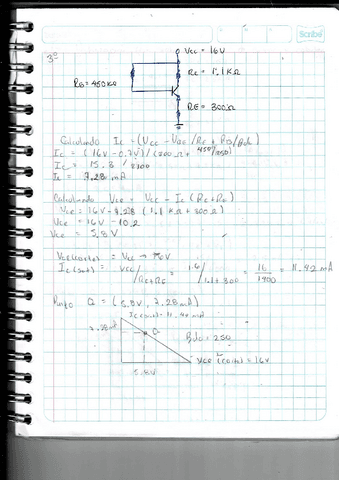 Scribe
3º
Vcc = 16V
Rc = 1.1 KΩ
RB = 450KΩ
RE = 300Ω
Calculando Ic = (Vcc - VBE / RE + RB/βdc)
Ic = (16V - 0.7V) / (300 Ω + 450/250)
Ic = 15.3 / 2100
Ic = 7.28 mA
Calculando VCE = Vcc - Ic (Rc + RE)
VCE = 16V - 7.28 (1.1 KΩ + 300Ω)
VCE = 16V - 10.2
VCE = 5.8V
VCE(corte) = Vcc → 16V
Ic(sat) = Vcc/Rc+RE = 16/1.1+300 = 16/1400 = 11.42 mA
Punto Q = (5.8V, 7.28mA)
Ic(sat) = 11.42 mA
7.28mA
Q
βdc = 250
VCE (corte) = 16V
5.8V